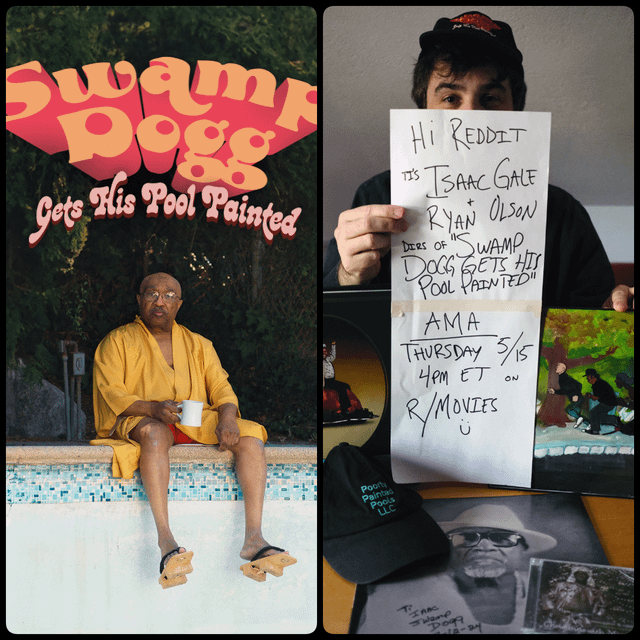 Swamp
Dogg
Gets His Pool Painted
Hi REDDIT
ITS ISAAC GALE
+
RYAN OLSON
DIRS OF "SWAMP
DOGG GETS HIS
POOL PAINTED"
AMA
THURSDAY 5/15
4PM ET ON
R/MOVIES
Poorly
Painted
Pools
LLC
To ISAAC
SWAMP
DOGG